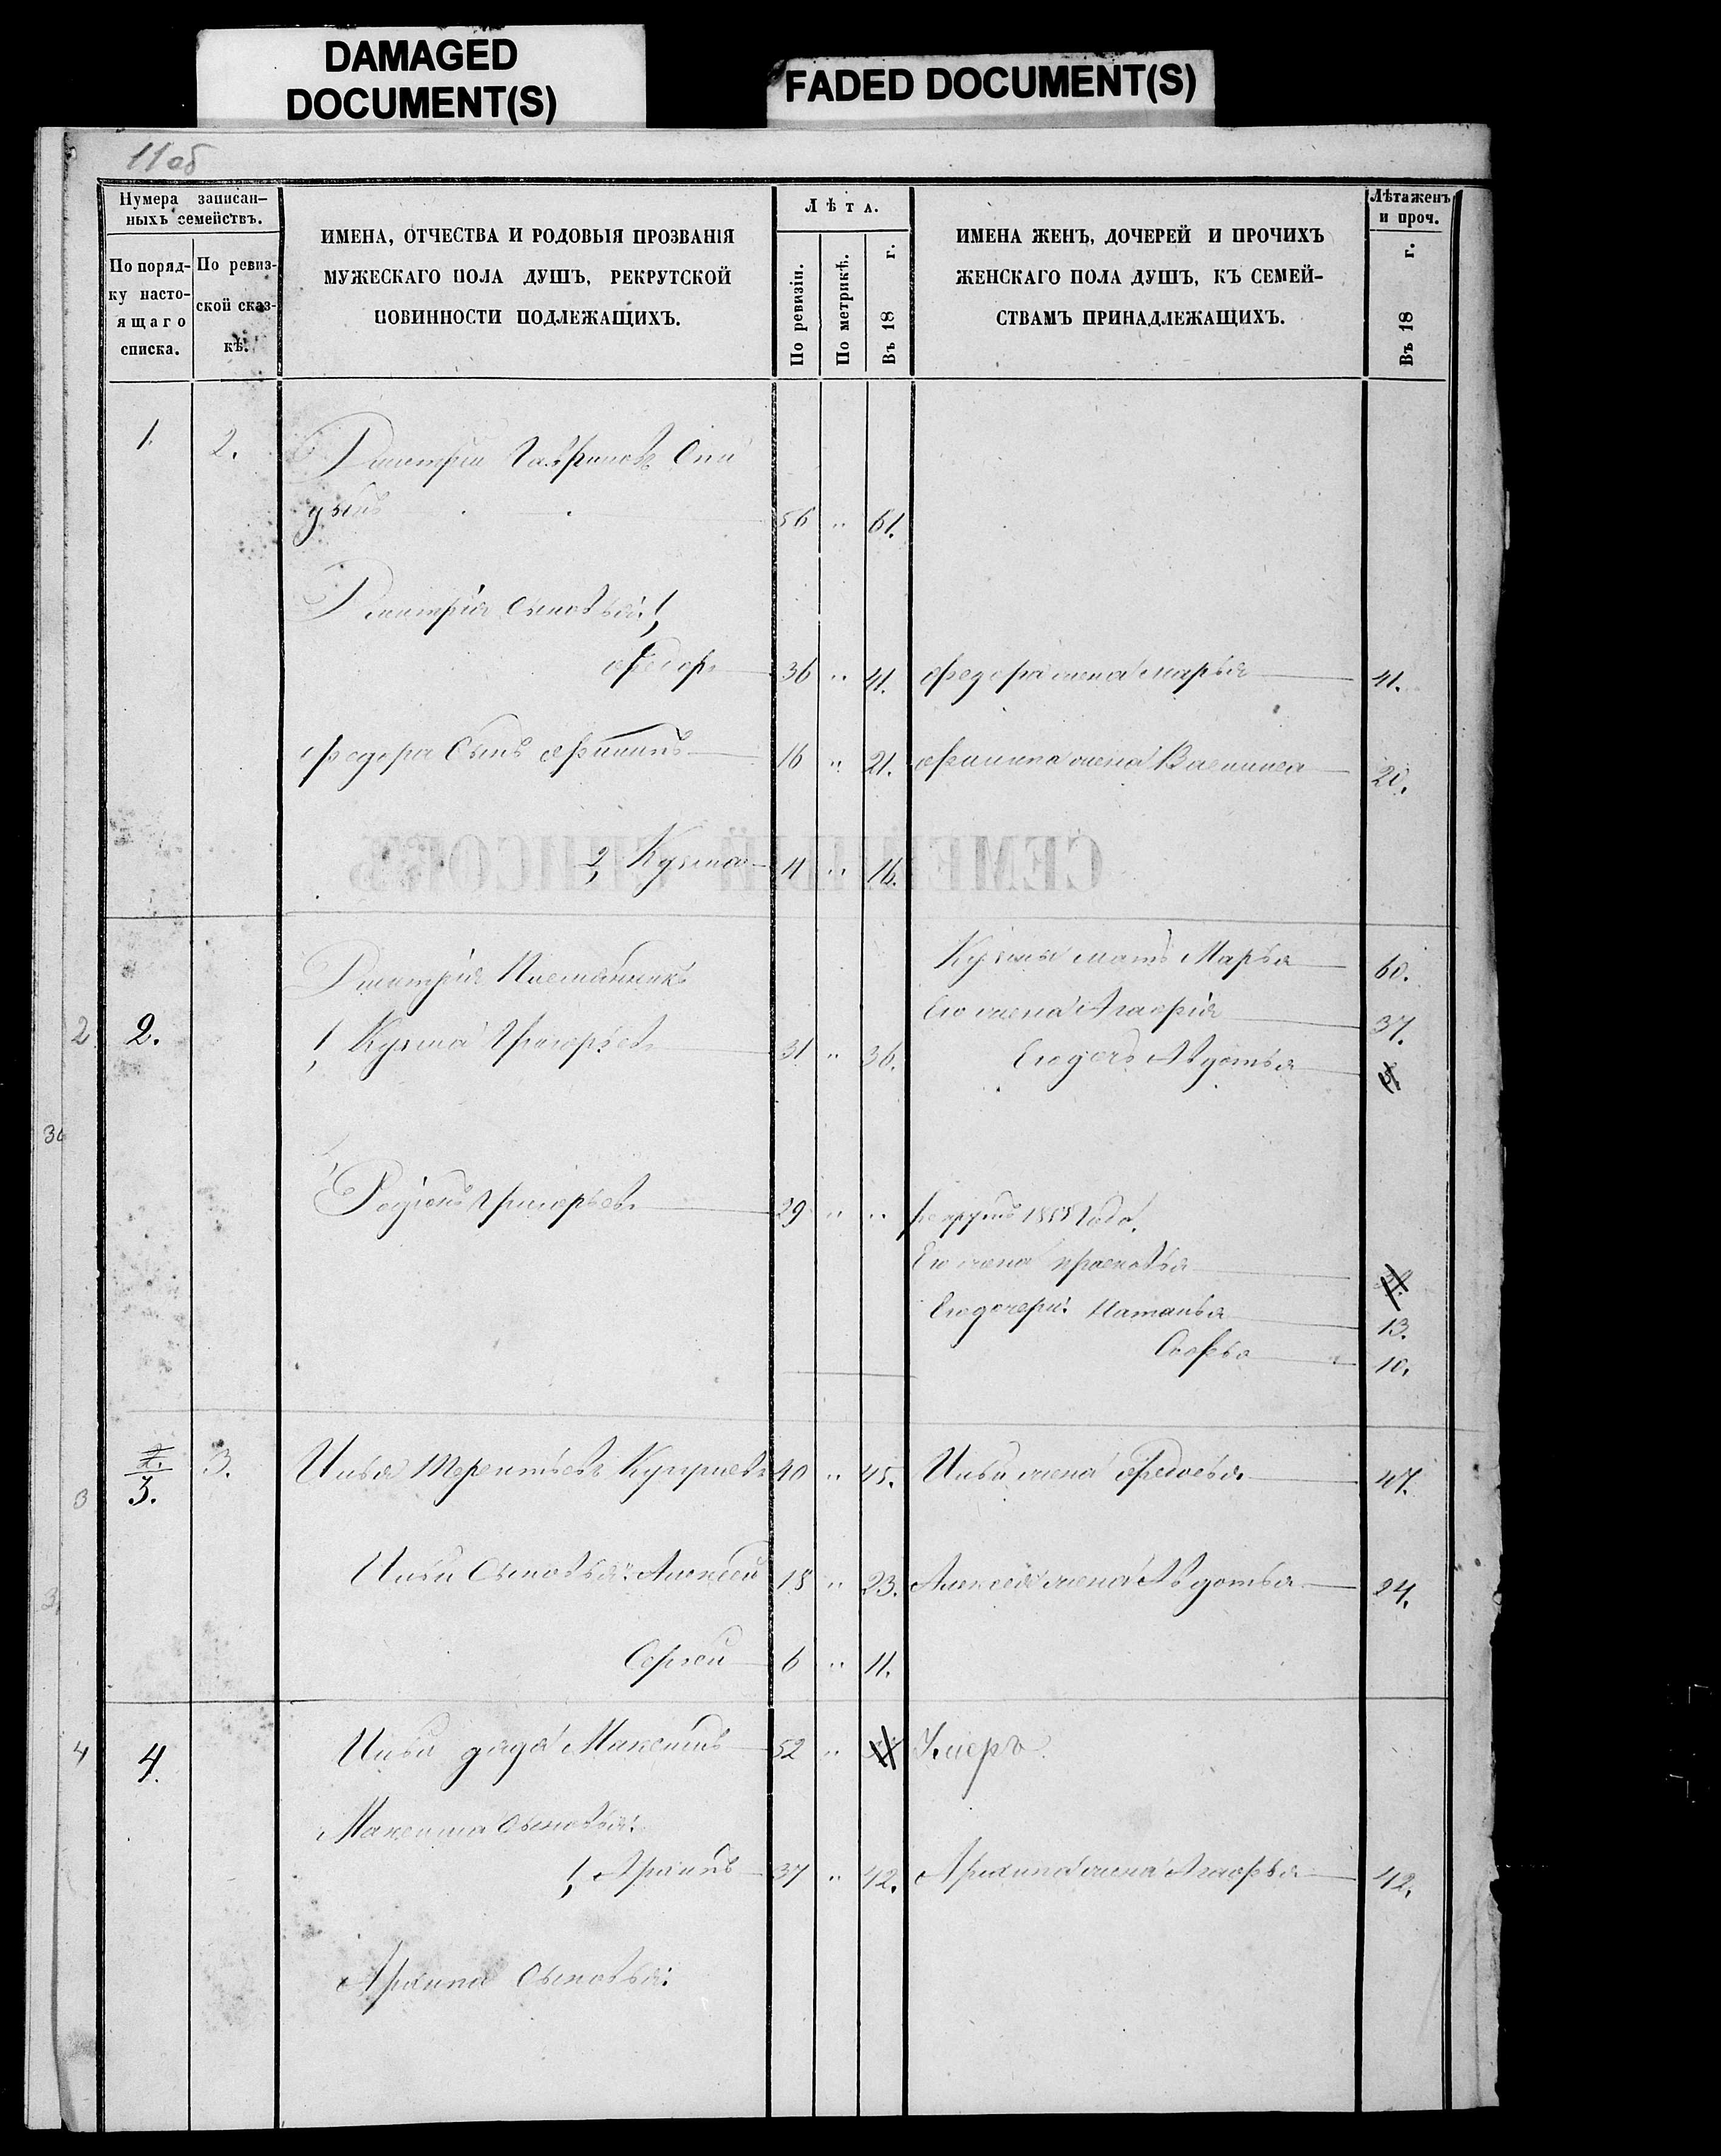 DAMAGED
DOCUMENT(S)
FADED DOCUMENT(S)
11об
Нумера записан-
ныхъ семействъ.
По поряд-
ку насто-
ящаго
списка.
По ревиз-
ской сказ-
кѣ.
ИМЕНА, ОТЧЕСТВА И РОДОВЫЯ ПРОЗВАНІЯ
МУЖЕСКАГО ПОЛА ДУШЪ, РЕКРУТСКОЙ
ПОВИННОСТИ ПОДЛЕЖАЩИХЪ.
Лѣта.
По ревизіи.
По метрикѣ.
Въ 18 г.
ИМЕНА ЖЕНЪ, ДОЧЕРЕЙ И ПРОЧИХЪ
ЖЕНСКАГО ПОЛА ДУШЪ, КЪ СЕМЕЙ-
СТВАМЪ ПРИНАДЛЕЖАЩИХЪ.
Лѣта женъ
и проч.
Въ 18 г.
1. 2. Дмитрій
56 " 61.
Дмитрія Сыновья: 1,
Федоръ 36 " 41. Федора жена Марья 41.
Федора Сынъ Филипъ 16 " 21. Филипа жена 20.
СЕМЕЙНЫЙ СПИСОКЪ
2, Кузма 11 " 16.
Дмитрія Племянникъ
Кузмы мать Марья 60.
Его жена Агафія 37.
2 2. 1, Кузма Григорьевъ 31 " 36.
Его дочь Авдотья
36
Родіонъ Григорьевъ 29 " " рекрутъ 1855 Года.
Его жена Прасковья
Его дочери: Наталья 13.
Софья 10.
3 2. 3. 3. Илья Терентьевъ Купріевъ 40 " 45. Ильи жена Федосья 47.
3 Ильи Сыновья: Алексей 18 " 23. Алексея жена Авдотья 24.
Сергей 6 " 11.
4 4. Ильи дядя Максимъ 52 " Умеръ.
Максима Сыновья:
1, Архипъ 37 " 42. Архипа жена Агафья 42.
Архипа Сыновья: